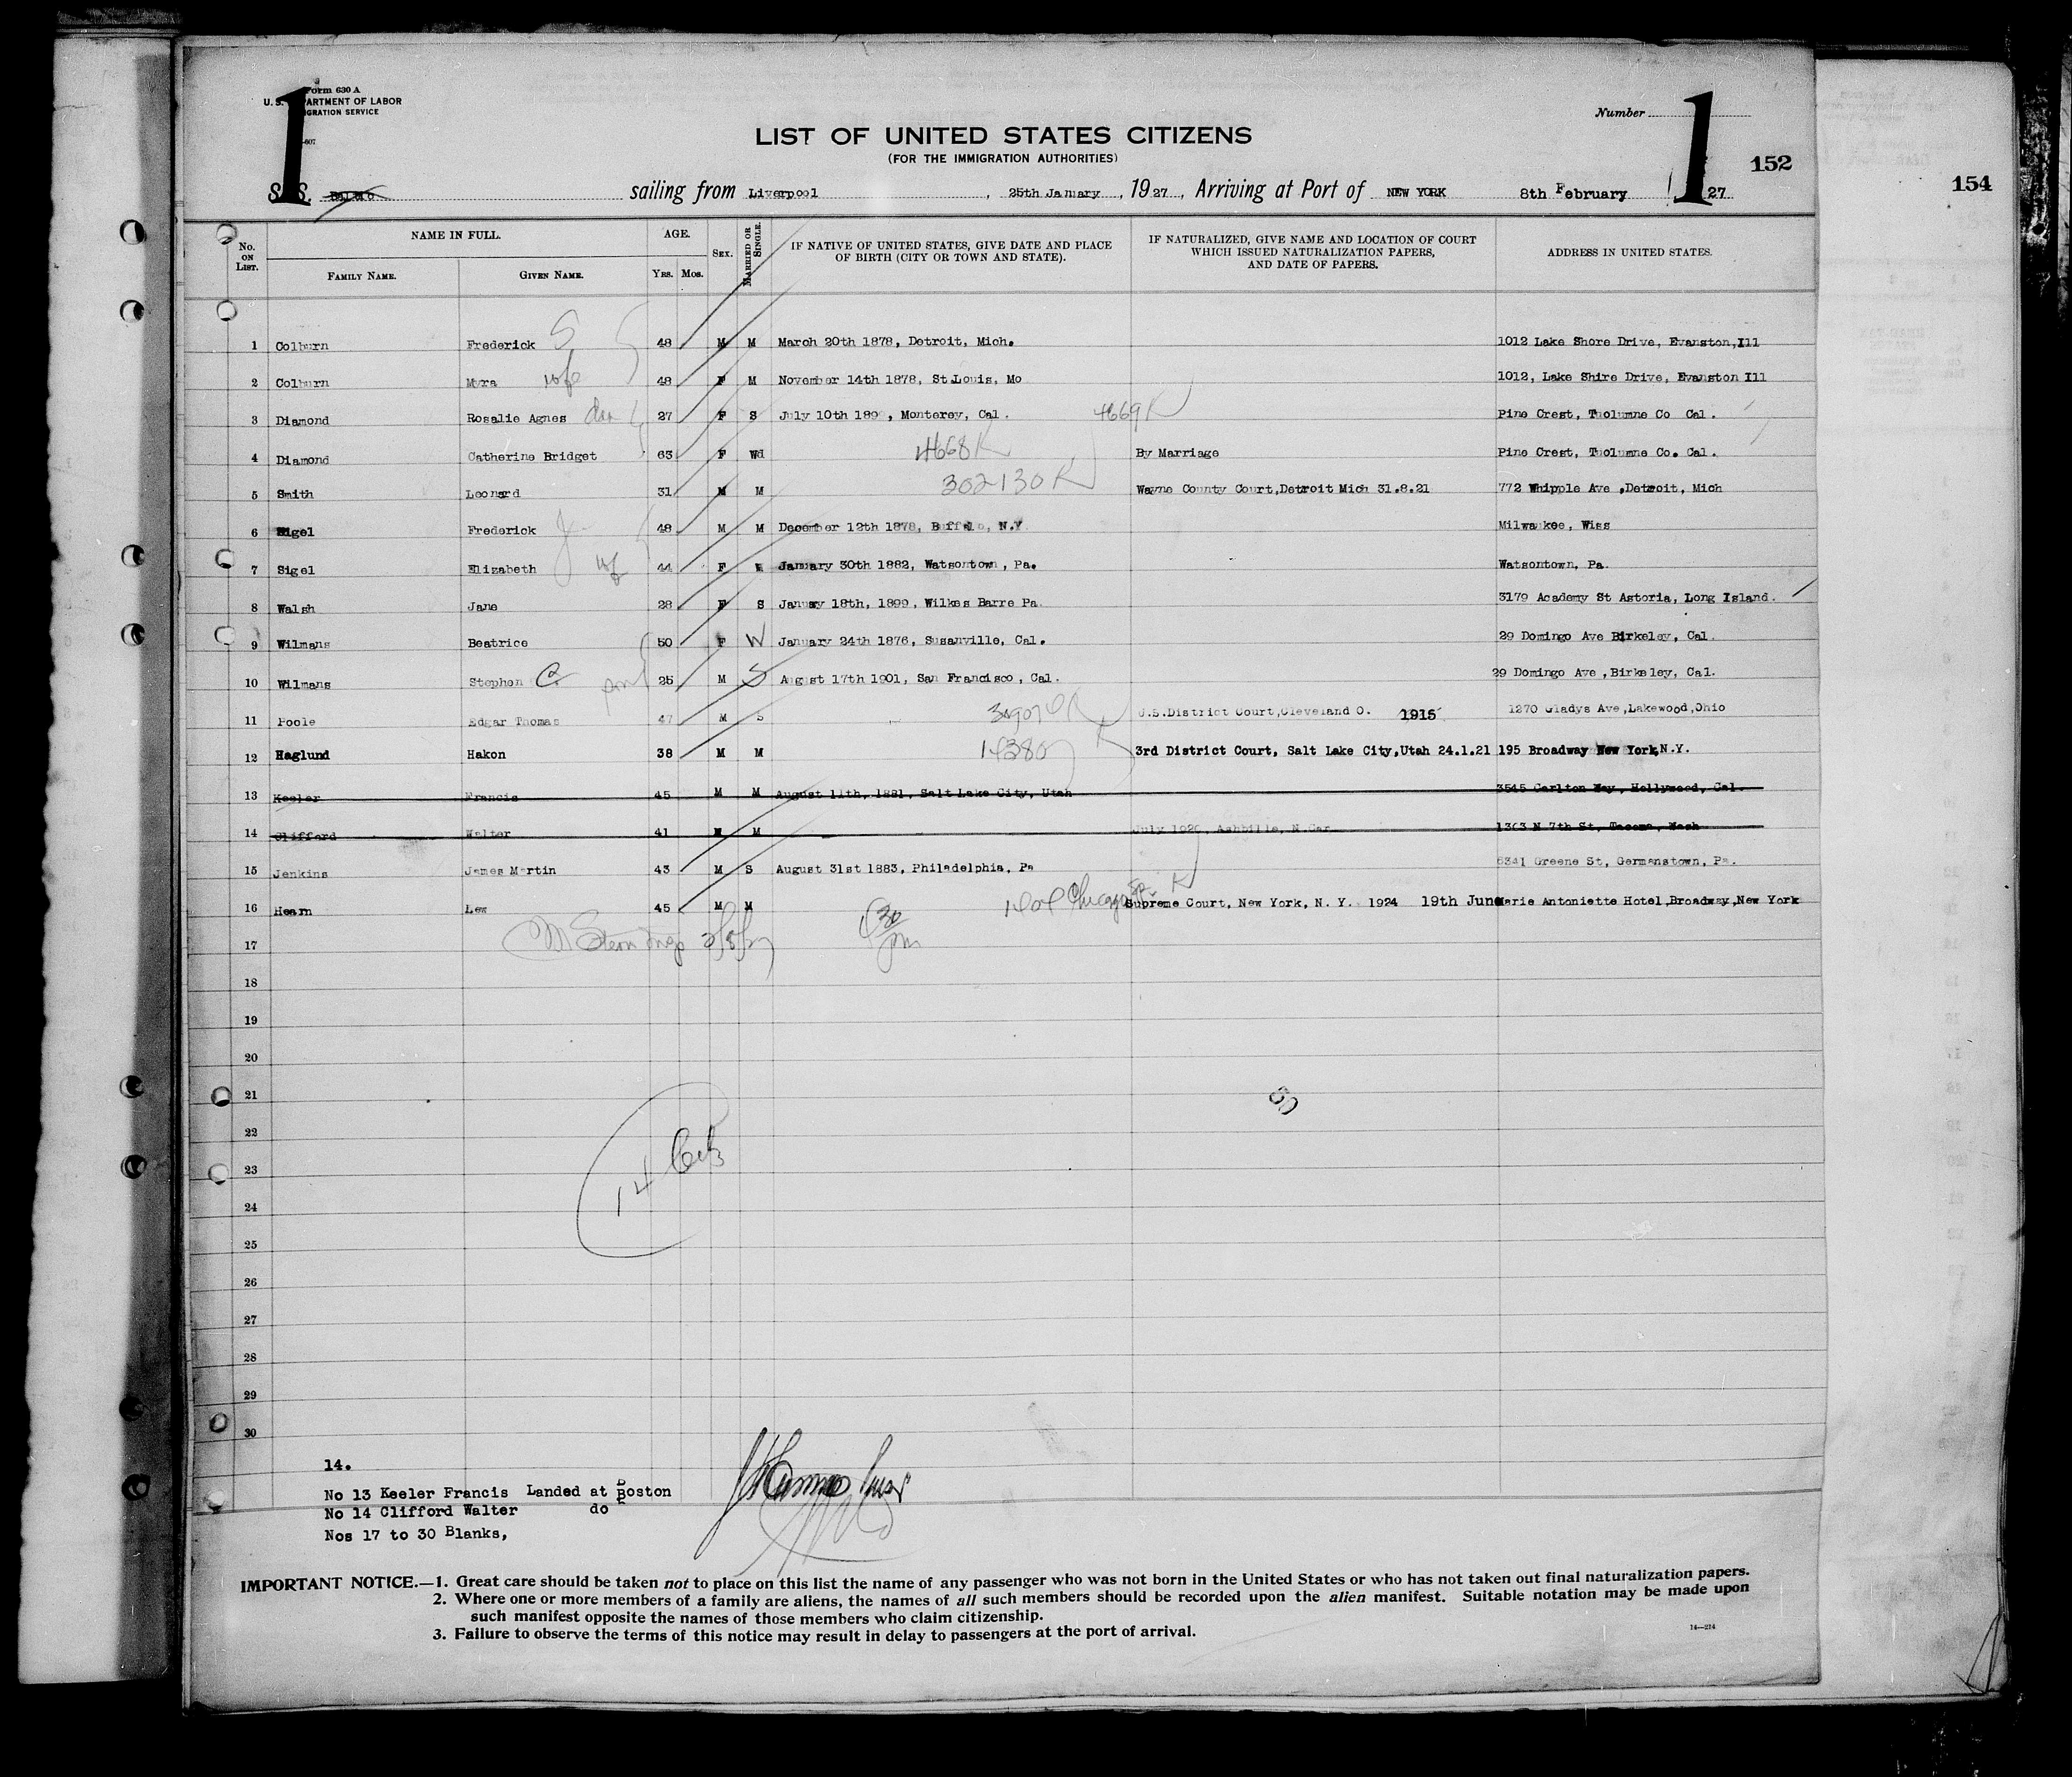 Form 630 A
U. S. DEPARTMENT OF LABOR
IMMIGRATION SERVICE
1
Number
1
LIST OF UNITED STATES CITIZENS
(FOR THE IMMIGRATION AUTHORITIES)
152
154
S. S. Baltic sailing from Liverpool, 25th January, 1927, Arriving at Port of NEW YORK 8th February 27
No. ON LIST. NAME IN FULL. FAMILY NAME. GIVEN NAME. AGE. YRS. MOS. SEX. MARRIED OR SINGLE. IF NATIVE OF UNITED STATES, GIVE DATE AND PLACE OF BIRTH (CITY OR TOWN AND STATE). IF NATURALIZED, GIVE NAME AND LOCATION OF COURT WHICH ISSUED NATURALIZATION PAPERS, AND DATE OF PAPERS. ADDRESS IN UNITED STATES.
1 Colburn Frederick S 48 M M March 20th 1878, Detroit, Mich. 1012 Lake Shore Drive, Evanston,Ill
2 Colburn Myra wfe 48 F M November 14th 1878, St.Louis, Mo 1012, Lake Shire Drive, Evanston Ill
3 Diamond Rosalie Agnes dau 27 F S July 10th 189 , Monterey, Cal. 4669K Pine Crest, Tuolumne Co Cal.
4 Diamond Catherine Bridget 63 F Wd 4668K By Marriage Pine Crest, Tuolumne Co. Cal.
5 Smith Leonard 31 M M 302130K Wayne County Court,Detroit Mich 31.8.21 772 Whipple Ave ,Detroit, Mich
6 Sigel Frederick J 48 M M December 12th 1878, Buffalo, N.Y Milwaukee, Wiss
7 Sigel Elizabeth wf 44 F January 30th 1882, Watsontown, Pa. Watsontown, Pa.
8 Walsh Jane 28 F S January 18th, 1899, Wilkes Barre Pa. 3179 Academy St Astoria, Long Island.
9 Wilmans Beatrice 50 F W January 24th 1876, Susanville, Cal. 29 Domingo Ave Birkeley, Cal.
10 Wilmans Stephen C. 25 M S August 17th 1901, San Francisco, Cal. 29 Domingo Ave ,Birkeley, Cal.
11 Poole Edgar Thomas 47 M S U.S.District Court,Cleveland O. 1915 1270 Gladys Ave,Lakewood,Ohio
12 Haglund Hakon 38 M M 3rd District Court, Salt Lake City,Utah 24.1.21 195 Broadway New York,N.Y.
13 Keeler Francis 45 M M August 11th, 1881, Salt Lake City, Utah 3545 Carlton Way, Hollywood, Cal.
14 Clifford Walter 41 M M July 1920, Ashbille, N.Car 1303 N 7th St, Tacoma, Wash
15 Jenkins James Martin 43 M S August 31st 1883, Philadelphia, Pa 6341 Greene St, Germanstown, Pa.
16 Hearn Lew 45 M M Chicago Supreme Court, New York, N. Y. 1924 19th June Marie Antoniette Hotel,Broadway,New York
17 2/8/27 30
18
19
20
21
22
23
24
25
26
27
28
29
30
14.
No 13 Keeler Francis Landed at Boston
No 14 Clifford Walter do
Nos 17 to 30 Blanks,
IMPORTANT NOTICE.—1. Great care should be taken not to place on this list the name of any passenger who was not born in the United States or who has not taken out final naturalization papers.
2. Where one or more members of a family are aliens, the names of all such members should be recorded upon the alien manifest. Suitable notation may be made upon
such manifest opposite the names of those members who claim citizenship.
3. Failure to observe the terms of this notice may result in delay to passengers at the port of arrival.
14—214